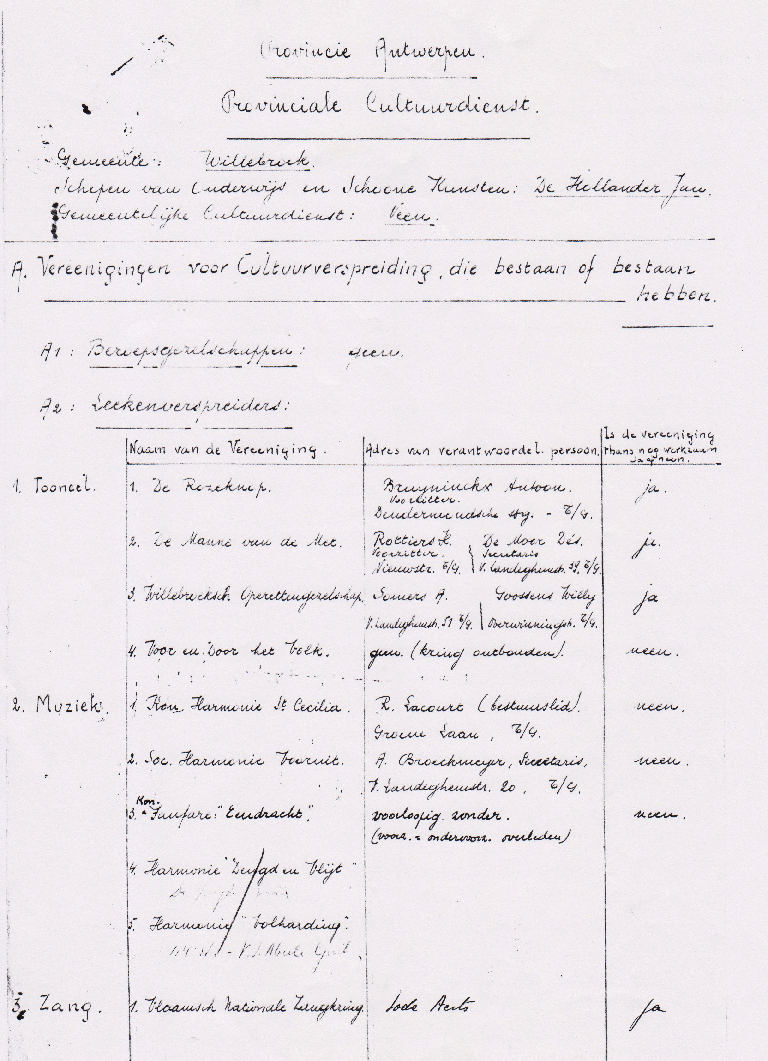 Provincie Antwerpen.
Provinciale Cultuurdienst.
Gemeente: Willebroek.
Schepen van Onderwijs en Schoone Kunsten: De Hollander Jan.
Gemeentelijke Cultuurdienst: Neen.
A. Vereenigingen voor Cultuurverspreiding, die bestaan of bestaan
hebben.
A1: Beroepsgezelschappen: geen.
A2: Leekenverspreiders:
Naam van de Vereeniging. Adres van verantwoordel. persoon. Is de vereeniging
thans nog werkzaam
Ja of neen.
1. Tooneel. 1. De Rozeknop. Bruyninckx Antoon. ja.
Voorzitter.
Dendermondsche stwg. - E/G.
2. De Manne van de Met. Rottiers H. De Moor Dés. ja.
Voorzitter. Secretaris
Nieuwstr. E/G. V. Landeghemstr. 59, E/G.
3. Willebroeksch Operettengezelschap. Somers A. Goossens Willy ja
V. Landeghemstr. 51 E/G. Overwinningstr. E/G.
4. Voor en Door het Volk. geen (kring ontbonden). neen.
2. Muziek. 1. Kon. Harmonie St Cecilia. R. Lacourt (bestuurslid). neen.
Groene Laan, E/G.
2. Soc. Harmonie Vooruit. A. Broeckmeyer, Secretaris, neen.
V. Landeghemstr. 20, E/G.
Kon.
3. Fanfare: "Eendracht". voorloopig zonder. neen.
(voorz. = ondervoorz. overleden)
4. Harmonie "Deugd en Vlijt"
5. Harmonie "Volharding".
3. Zang. 1. Vlaamsch Nationale Zangkring. Lode Aerts ja